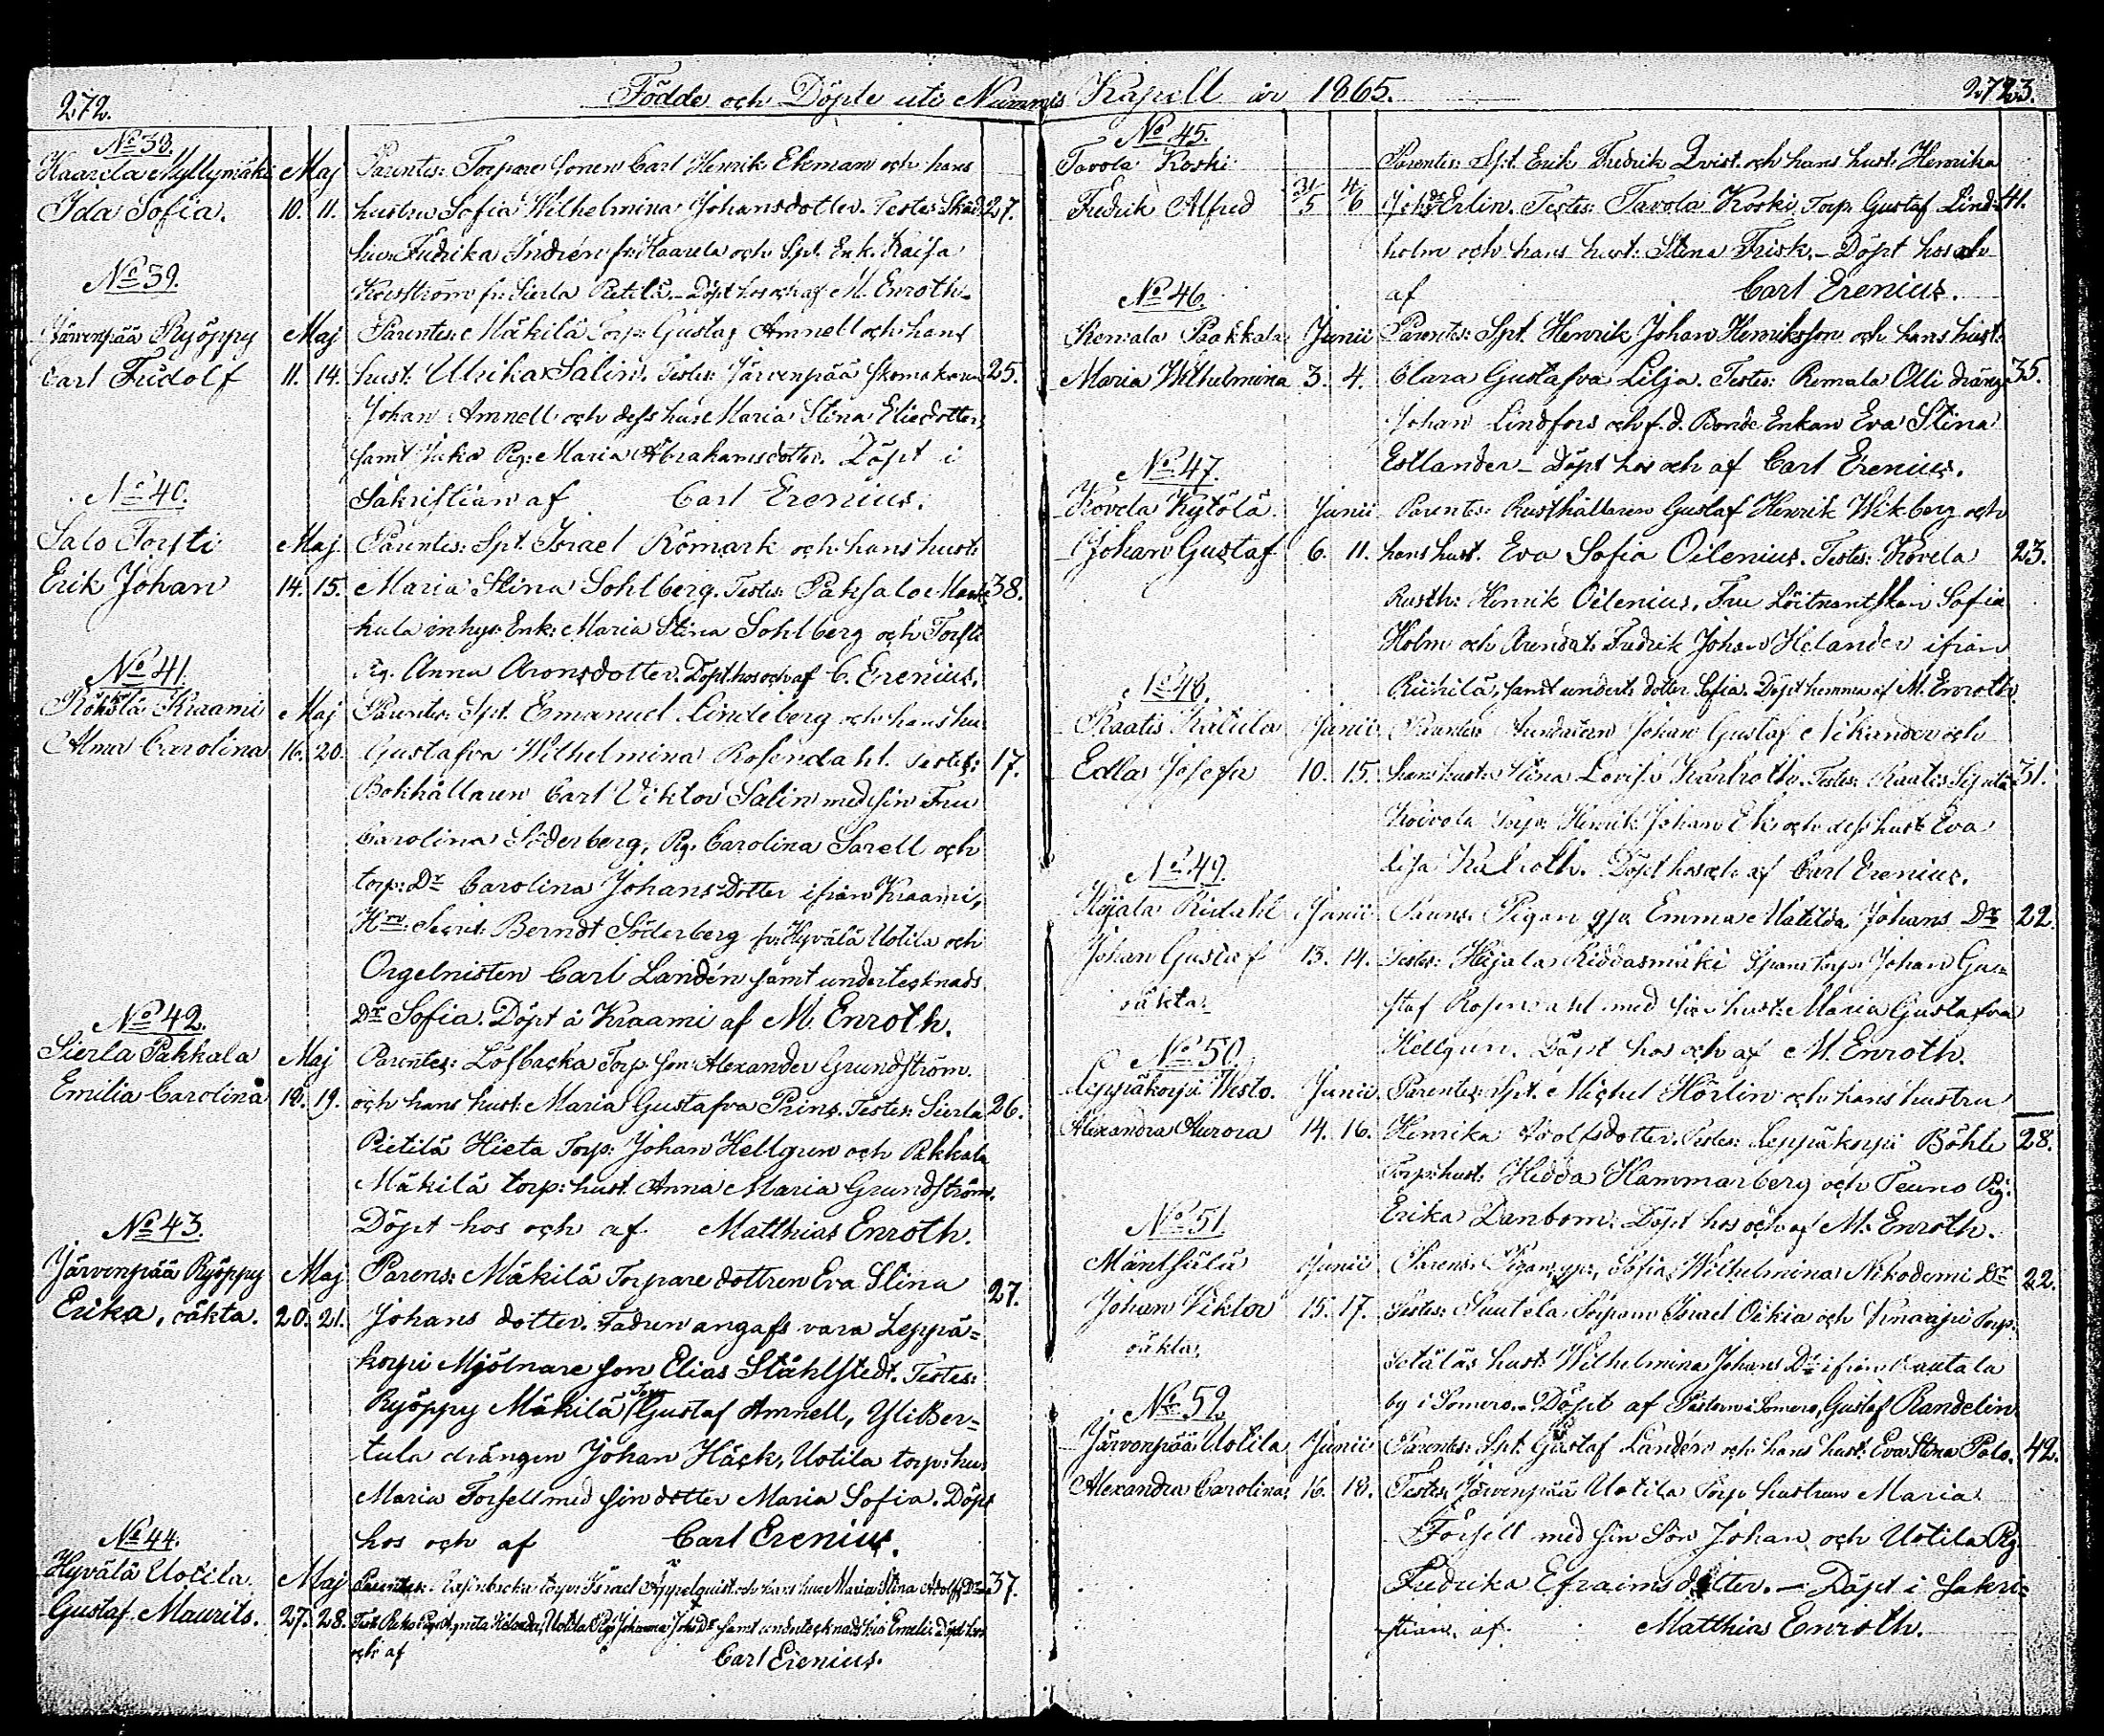 272.
Födde och Döpte uti Nummis Kapell år 1865.
2723.
No 38.
Kaarela Myllymäki Maj Parentes: Torpare sonen Carl Henrik Ekman och hans
Ida Sofia. 10. 11. hustru Sofia Wilhelmina Johansdotter. Testes: 27.
Fredrika Indrén fr: Kaarela och Spt. Enk. Kaisa
No 39.
fr: Sierla Pietilä. Döpt hos och af M. Enroth.
Järvenpää Ryöppy Maj Parentes: Mäkilä Torp: Gustaf Amnell och hans
Carl Fridolf 11. 14. hust: Ulrika Salin. Testes: Järvenpää skomakaren 25.
Johan Amnell och dess hus: Maria Stina Eliedotter,
samt Pig: Maria Abrahamsdotter. Döpt i
No 40.
Sakristian af Carl Erenius.
Salo Torsti Maj Parentes: Spt. Israel Römark och hans hust:
Erik Johan 14. 15. Maria Stina Sohlberg. Testes: Paksalo 38.
kula inhys: Enk: Maria Stina Sohlberg och Torsti
No 41.
Pig. Anna Aronsdotter. Döpt hos och af C. Erenius.
Kraami Maj Parentes: Spt. Emanuel Lindeberg och hans hu.
Alma Carolina 16. 20. Gustafva Wilhelmina Rosendahl. Testes: 17.
Bokhållaren Carl Viktor Salin med sin Fru
Carolina Söderberg, Pig. Carolina Sarell och
torp: Dr Carolina Johans Dotter ifrån Kraami,
Berndt Söderberg fr: Hyvälä Uotila och
Orgelnisten Carl Landén samt undertecknads
No 42.
Dr Sofia. Döpt å Kraami af M. Enroth.
Sierla Pakkala Maj Parentes: Löfbacka Torp: son Alexander Grundström
Emilia Carolina 18. 19. och hans hust: Maria Gustafva Prins. Testes: Sierla 26.
Pietilä Hieta Torp: Johan Hellgren och Pakkala
Mäkilä torp: hust. Anna Maria Grundström.
No 43.
Döpt hos och af Matthias Enroth.
Järvenpää Ryöppy Maj Parens: Mäkilä Torpare dottren Eva Stina 27.
Erika, oäkta. 20. 21. Johans dotter. Fadren angafs vara Leppä-
korpi Mjölnare son Elias Ståhlstedt. Testes:
Ryöppy Mäkilä Torp Gustaf Amnell, Yli Ber-
tula drängen Johan Häck, Uotila torp: hu:
Maria Forsell med sin dotter Maria Sofia. Döpt
No 44.
hos och af Carl Erenius.
Hyvälä Uotila Maj Parentes: torp: Israel Äppelquist och hans hus Maria Stina Adolfs Dr 37.
Gustaf Maurits. 27. 28. Uotila Pig: Johanna Johs Dr samt undertecknads Emelie döpt hos
och af Carl Erenius.
No 45.
Tavola Koski Parentes: Spt. Erik Fredrik Qvist och hans hust: Henrika
Fredrik Alfred 31/5 4/6 Johs Dr Erlin. Testes: Tavola Koski Torp. Gustaf Lind- 41.
holm och hans hust: Stina Frisk. - Döpt hos och
No 46.
af Carl Erenius.
Remala Paakkala Junii Parentes: Spt. Henrik Johan Henriksson och hans hust:
Maria Wilhelmina 3. 4. Clara Gustafva Lilja. Testes: Remala Olli dräng 35.
Johan Lindfors och f. d. Bonde Enkan Eva Stina
No 47.
Estlander - Döpt hos och af Carl Erenius.
Kovela Kytölä Junii Parentes: Rusthållaren Gustaf Henrik Wikberg och
Johan Gustaf 6. 11. hans hust. Eva Sofia Oilenius. Testes: Kovela 23.
Rusth: Henrik Oilenius, Fru Löitnantskan Sofia
Holm och Arendat: Fredrik Johan Helander ifrån
No 48.
samt undert: dotter Sofia. Döpt hemma af M. Enroth.
Raatis Junii Parentes: Johan Gustaf Nikander och
Edla Josefa 10. 15. hans hustru Stina Lovisa Testes: Raatis 31.
Koivola Torp: Henrik Johan Ek och dess hust: Eva
No 49.
Lisa Döpt hos och af Carl Erenius.
Junii Parens: Pigan Emma Matilda Johans Dr 22.
Johan Gustaf 13. 14. Testes: Riddasmäki Torp: Johan Gu-
oäkta. staf Rosendahl med sin hust: Maria Gustafva
No 50.
Hellgren. Döpt hos och af M. Enroth.
Leppäkorpi Westo. Junii Parentes: Spt. Michel Hörlin och hans hustru
Alexandra Aurora 14. 16. Henrika Adolfsdotter. Testes: Leppäkorpi Böhle 28.
Torp: hust: Hedda Hammarberg och Teuno Pig:
No 51.
Erika Danbom. Döpt hos och af M. Enroth.
Mäntsälä Junii Parens: Pigan, Sofia Wilhelmina Nikodemi Dr 22.
Johan Viktor 15. 17. Testes: Suutela Israel Oikia och Knaapi Torp.
oäkta. hust: Wilhelmina Johans Dr ifrån
No 52.
by i Somero. Döpt af i Somero, Gustaf Randelin.
Järvenpää Uotila Junii Parentes: Spt. Gustaf Landén och hans hust: Eva Stina Palo. 42.
Alexandra Carolina 16. 18. Testes: Järvenpää Uotila Torp: hustrun Maria
Forsell med sin Son Johan och Uotila Pig
Fredrika Efraims dotter. - Döpt i Sakri-
stian af Matthias Enroth.